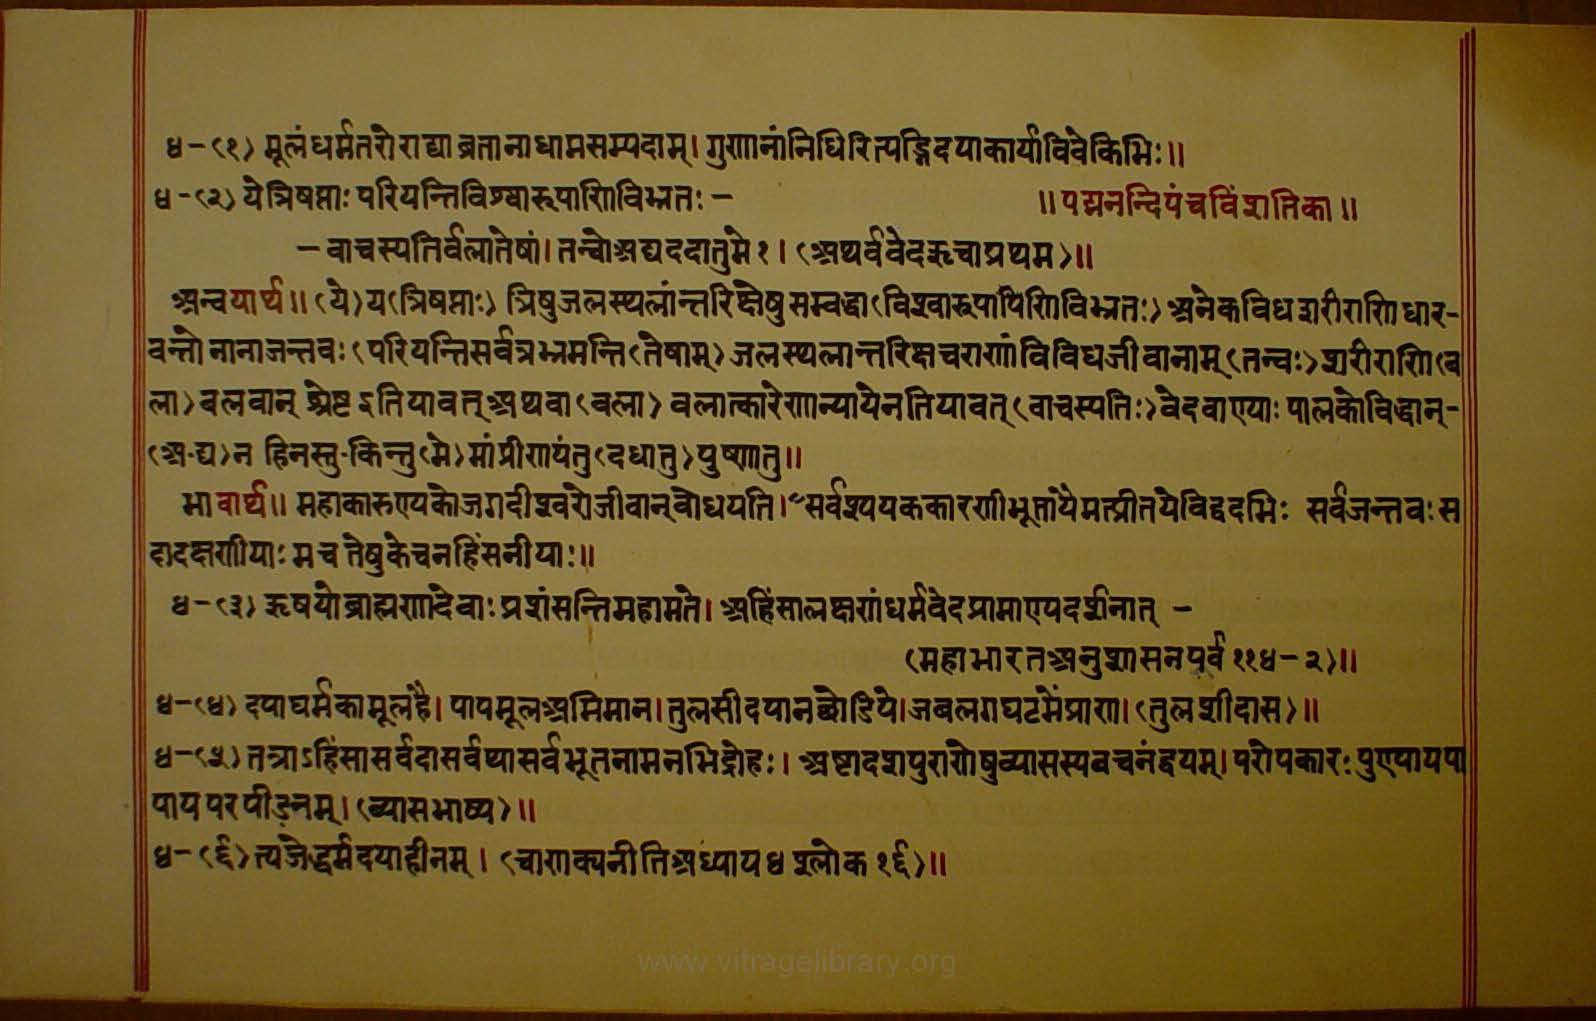 ४-(१) मूलंधर्मतरोराद्याव्रतानाधामसम्पदाम्। गुणानांनिधिरित्यङ्गिदयाकार्याविवेकिभिः॥
४-(२) येत्रिषप्ताः परियन्तिविश्वारूपाणिविभ्रतः - ॥पद्मनन्दिपंचविंशतिका॥
- वाचस्पतिर्वलातेषां। तन्वोअद्यददातुमे१। (अथर्ववेदऋचाप्रथम)॥
अन्वयार्थ॥ (ये)य(त्रिषप्ताः) त्रिषुजलस्थलांन्तरिक्षेषुसम्वद्धा(विश्वारूपापिणिविभ्रतः) अनेकविधशरीराणिधार-
वन्तो नानाजन्तवः(परियन्तिसर्वत्रभ्रमन्ति(तेषाम्) जलस्थलान्तरिक्षचराणांविविधजीवानाम्(तन्वः)शरीराणि(व
ला) बलवान् श्रेष्टऽतियावत्अथवा(वला) वलात्कारेणान्यायेनतियावत्(वाचस्पतिः)वेदवाण्याः पालकोविद्वान्-
(अ-द्य)न हिनस्तु-किन्तु(मे)मांप्रीणायंतु(दधातु)पुष्णातु॥
भावार्थ॥ महाकारुण्यकोजगदीश्वरोजीवान्वोधयति।“सर्वश्पयककारणीभूप्तांयैमत्प्रीतयेविद्वदभिः सर्वजन्तवः स
दादक्षणीयाः मच तेषुकेचनहिंसनीयाः॥
४-(३) ऋषयोब्राह्मणादेवाः प्रशंसन्तिमहामते। अहिंसालक्षणंधर्मवेदप्रामाण्यदर्शनात् -
(महाभारतअनुशासनपर्व ११४-२)॥
४-(४) दयाधर्मकामूलंहै। पापमूलअभिमान। तुलसीदयानछोडिये। जबलगघटमेंप्राण। (तुलशीदास)॥
४-(५) तत्राऽहिंसासर्वदासर्वथासर्वभूतनामनभिद्रोहः। अष्टादशपुराणेषुव्यासस्यवचनंद्वयम्। परोपकारः पुण्यायपा
पायपरपीडनम्। (व्यासभाष्य)॥
४-(६) त्यजेद्धर्मदयाहीनम्। (चाणक्यनीतिअध्याय४श्लोक१६)॥
www.vitragelibrary.org